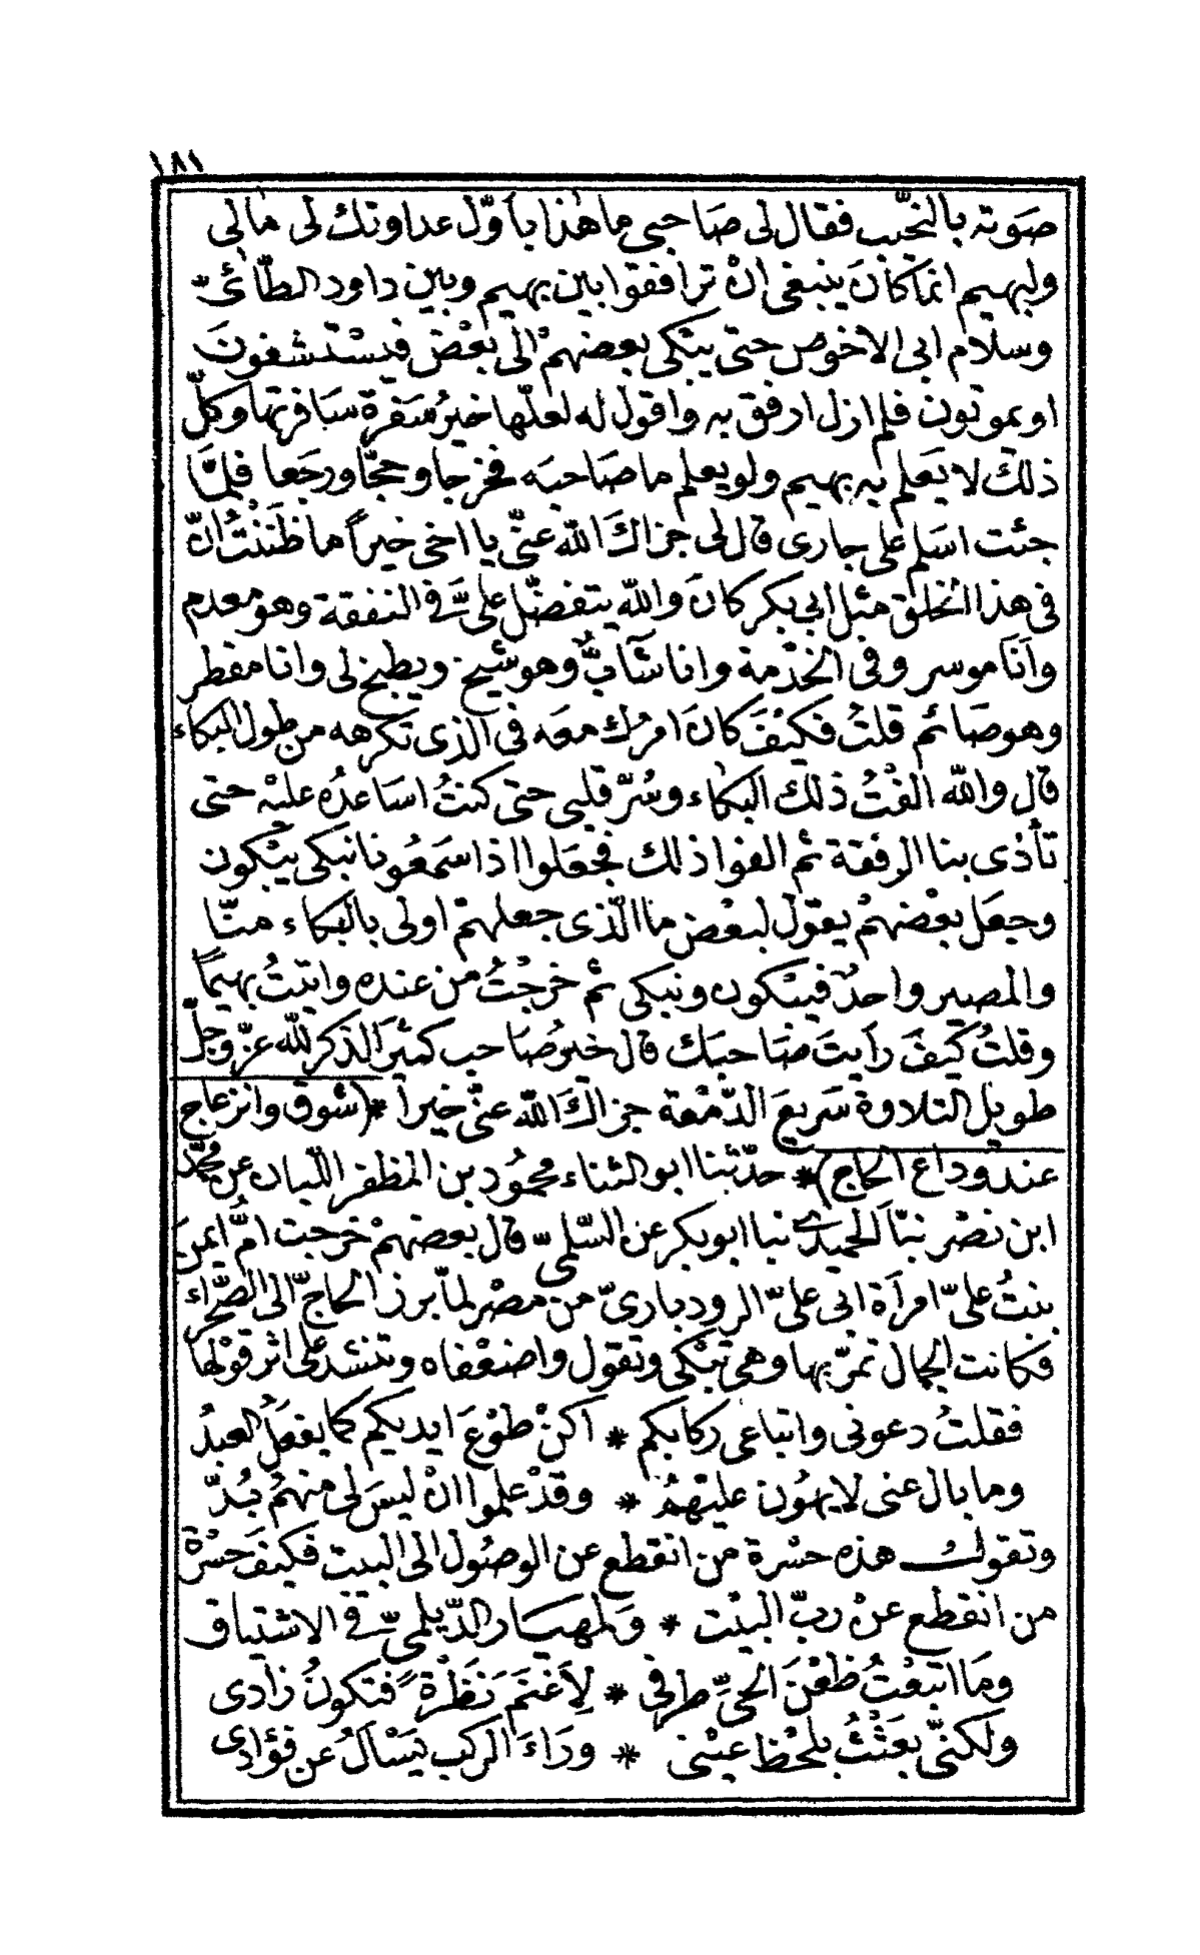 ١٨١
صَوته بالنحّيب فقال لى صَاحبى ما هٰذا باَوّل عداوتك لى مٰالى
ولبهيم انماكانَ ينبغى انْ ترافقوا بين بهيم وبين داود الطّائىّ
وسلام ابى الاخوص حتى يبْكى بعضهمْ الى بعْض فيسْتشفونَ
اويموتون فلم ازل ارفق به واقول له لعلّها خيرُ سَفرة سَافرتها وكلّ
ذلك لا يَعلم به بهيم ولو يعلم ما صَاحبَه فخرجا وحجّا ورجَعا فلمّا
جئت اسَلم على جارى قال لى جزاكَ الله عنّى يا اخى خيراً ما ظنَنْتُ انّ
فى هذا الخلق مثل ابى بكر كانَ والله يتفضّل علىَّ فى النفقة وهو معدم
وانَا موسر وفى الخدْمة وانا شَابٌّ وهو شيخ ويطبخ لى وانا مفطر
وهو صَائم قلتُ فكيْفَ كانَ امرك معَه فى الذى تكرهه من طول البكاء
قال والله الفْتُ ذلك البكاء وسُرّ قلبى حتى كنتُ اسَاعدُه عليْه حتى
تأذى بنا الرفقة ثم الفوا ذلك فجعَلوا اذا سَمعُونا نبكى يبْكون
وجعَل بعْضهمْ يقول لبعْض ما الّذى جعلهمْ اولى بالبكاء منّا
والمصير واحدٌ فيبْكون ونبكى ثم خرجْتُ من عنده واتيتُ بهيماً
وقلتُ كيفَ رأيتَ صَاحبَك قال خيرُ صَاحب كثيرَ الذكر لله عزّ وجلّ
طويل التلاوة سَريعَ الدّمْعة جزاكَ الله عنّى خيراً * (شوق وانزعاج
عند وداع الحاج) * حدّثنا ابو الثناء محمُود بن المظفر اللّبان عن محمّد
ابن نصْر نبّا الحميدى نبا ابو بكر عن السّلمىّ قال بعضهمْ خرجت امُّ ايمنَ
بنتُ علىّ امرأة ابى علىّ الرودبارىّ من مصْر لمّا برز الحاجّ الى الصّحْراء
فكانت الجمال تمرّ بها وهى تبْكى وتقول واضعْفاه وتنشد على اثر قوْلها
فقلتُ دعونى واتباعى ركابكم * اكنْ طوْعَ ايديكم كما يفعَلُ العبدُ
وما بال عنى لا يهُون عليْهمُ * وقدْ علموا انْ ليسَ لى منهمُ بُدّ
وتقول هذه حسْرة من انقطع عن الوصُول الى البيت فكيفَ حسْرةُ
من انقطع عنْ ربّ البيْت * ولمهيَار الدّيلمىّ فى الاشتياق
ومَا اتبعْتُ ظعْنَ الحىِّ طرفى * لِأغنَمَ نَظْرةً فتكونُ زادى
ولكنّى بعَثْتُ بلحْظ عيْنى * ورَاءَ الركب يَسْألُ عن فؤادى